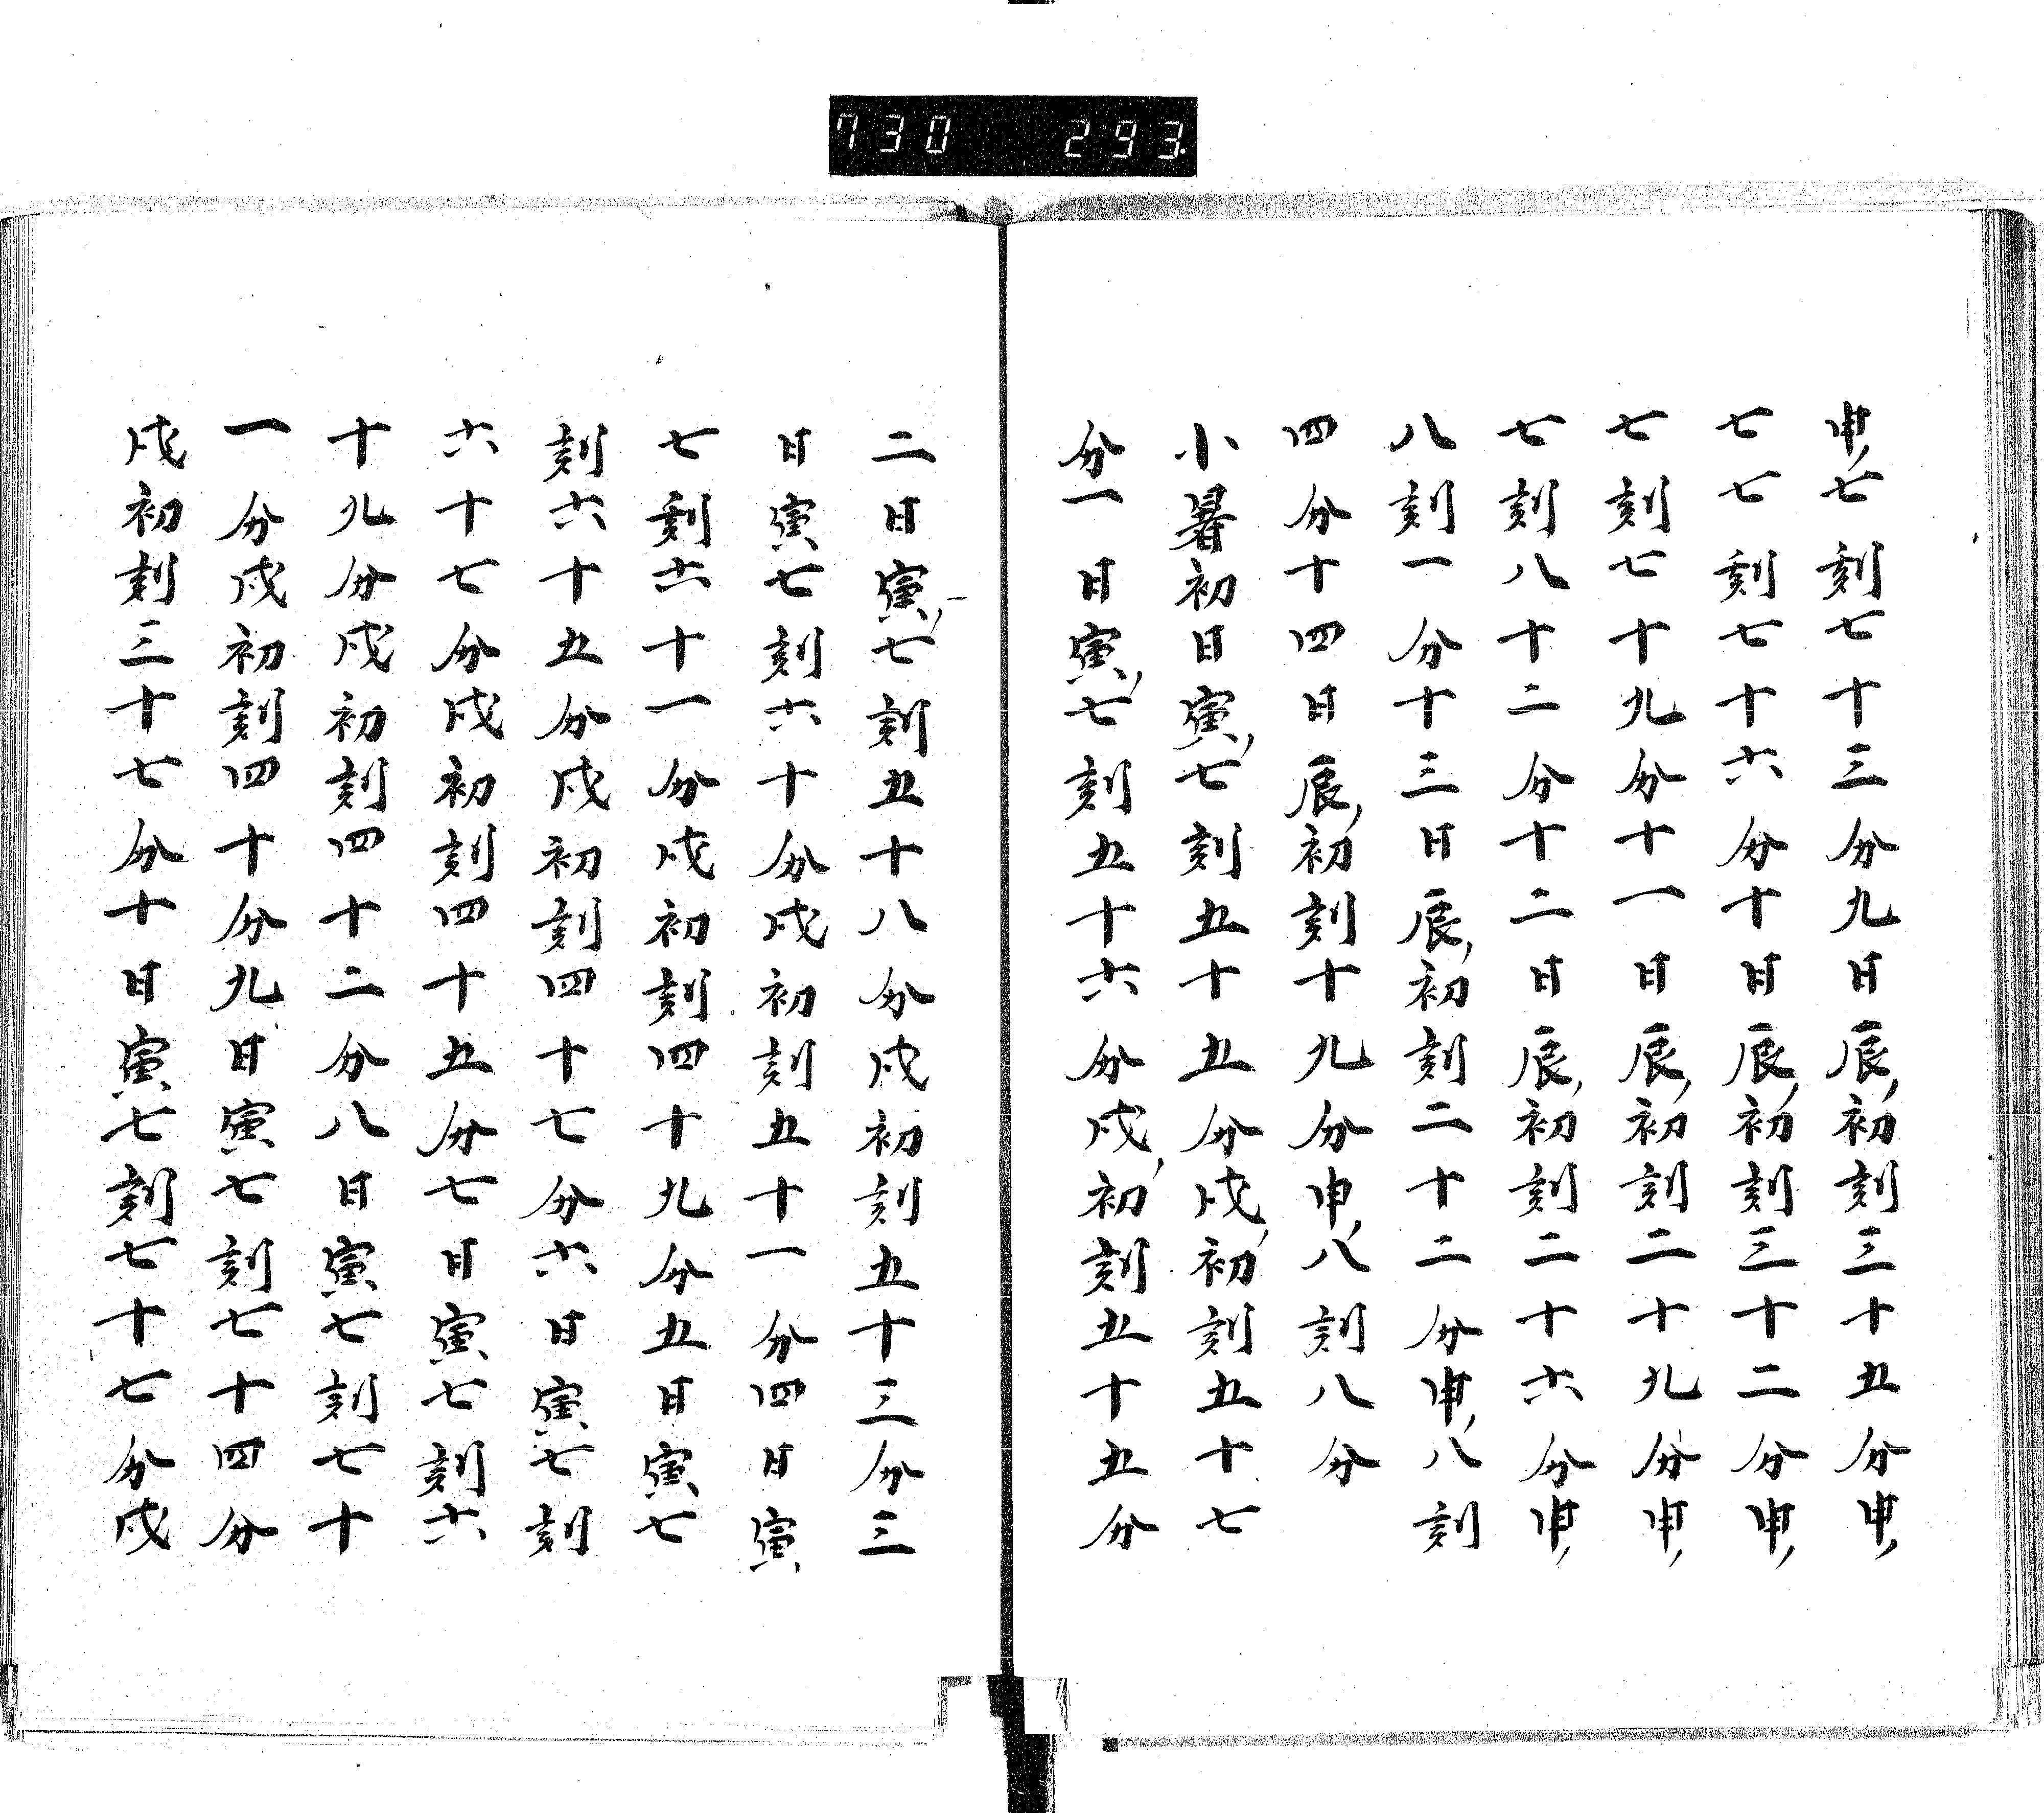 730 293.
申七刻七十三分九日辰初刻三十五分申
七七刻七十六分十日辰初刻三十二分申
七刻七十九分十一日辰初刻二十九分申
七刻八十二分十二日辰初刻二十六分申
八刻一分十三日辰初刻二十二分申八刻
四分十四日辰初刻十九分申八刻八分
小暑初日寅七刻五十五分戌初刻五十七
分一日寅七刻五十六分戌初刻五十五分
二日寅七刻五十八分戌初刻五十三分三
日寅七刻六十分戌初刻五十一分四日寅
七刻六十一分戌初刻四十九分五日寅七
刻六十五分戌初刻四十七分六日寅七刻
六十七分戌初刻四十五分七日寅七刻六
十九分戌初刻四十二分八日寅七刻七十
一分戌初刻四十分九日寅七刻七十四分
戌初刻三十七分十日寅七刻七十七分戌